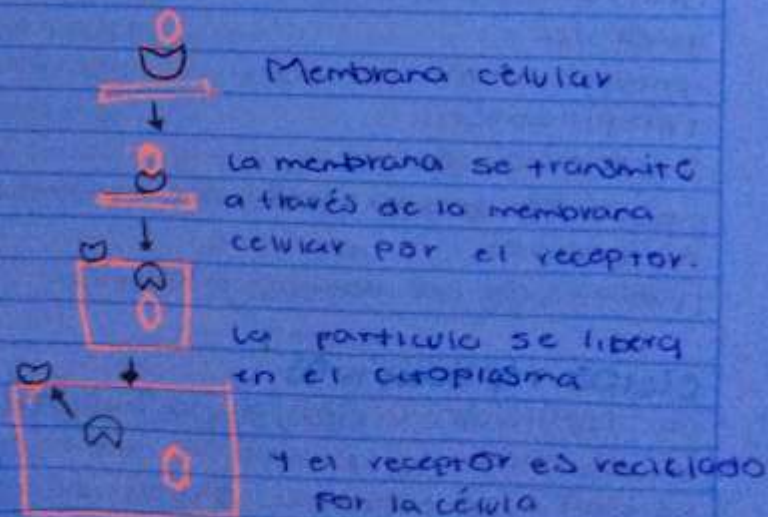 Membrana celular
La membrana se transmite
a través de la membrana
celular por el receptor.
La particula se libera
en el citoplasma
y el receptor es reciclado
por la célula